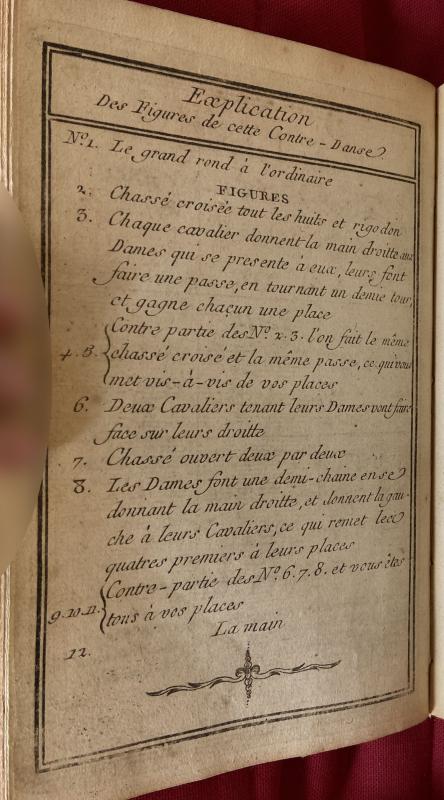 Explication
Des Figures de cette Contre-Danse
No. 1. Le grand rond à l'ordinaire
FIGURES
2. Chassé croisée tout les huits et rigodon
3. Chaque cavalier donnent la main droitte aux
Dames qui se presente à eux, leurs font
faire une passe, en tournant un demie tour,
et gagne chaçun une place
Contre partie des No. 2. 3. l'on fait le même
4. 5. chassé croise et la même passe, ce qui vous
met vis-à-vis de vos places
6. Deux Cavaliers tenant leurs Dames vont faire
face sur leurs droitte
7. Chassé ouvert deux par deux
8. Les Dames font une demi-chaine en se
donnant la main droitte, et donnent la gau-
che à leurs Cavaliers, ce qui remet les
quatres premiers à leurs places
Contre-partie des No. 6. 7. 8. et vous êtes
9. 10. 11. tous à vos places
12. La main